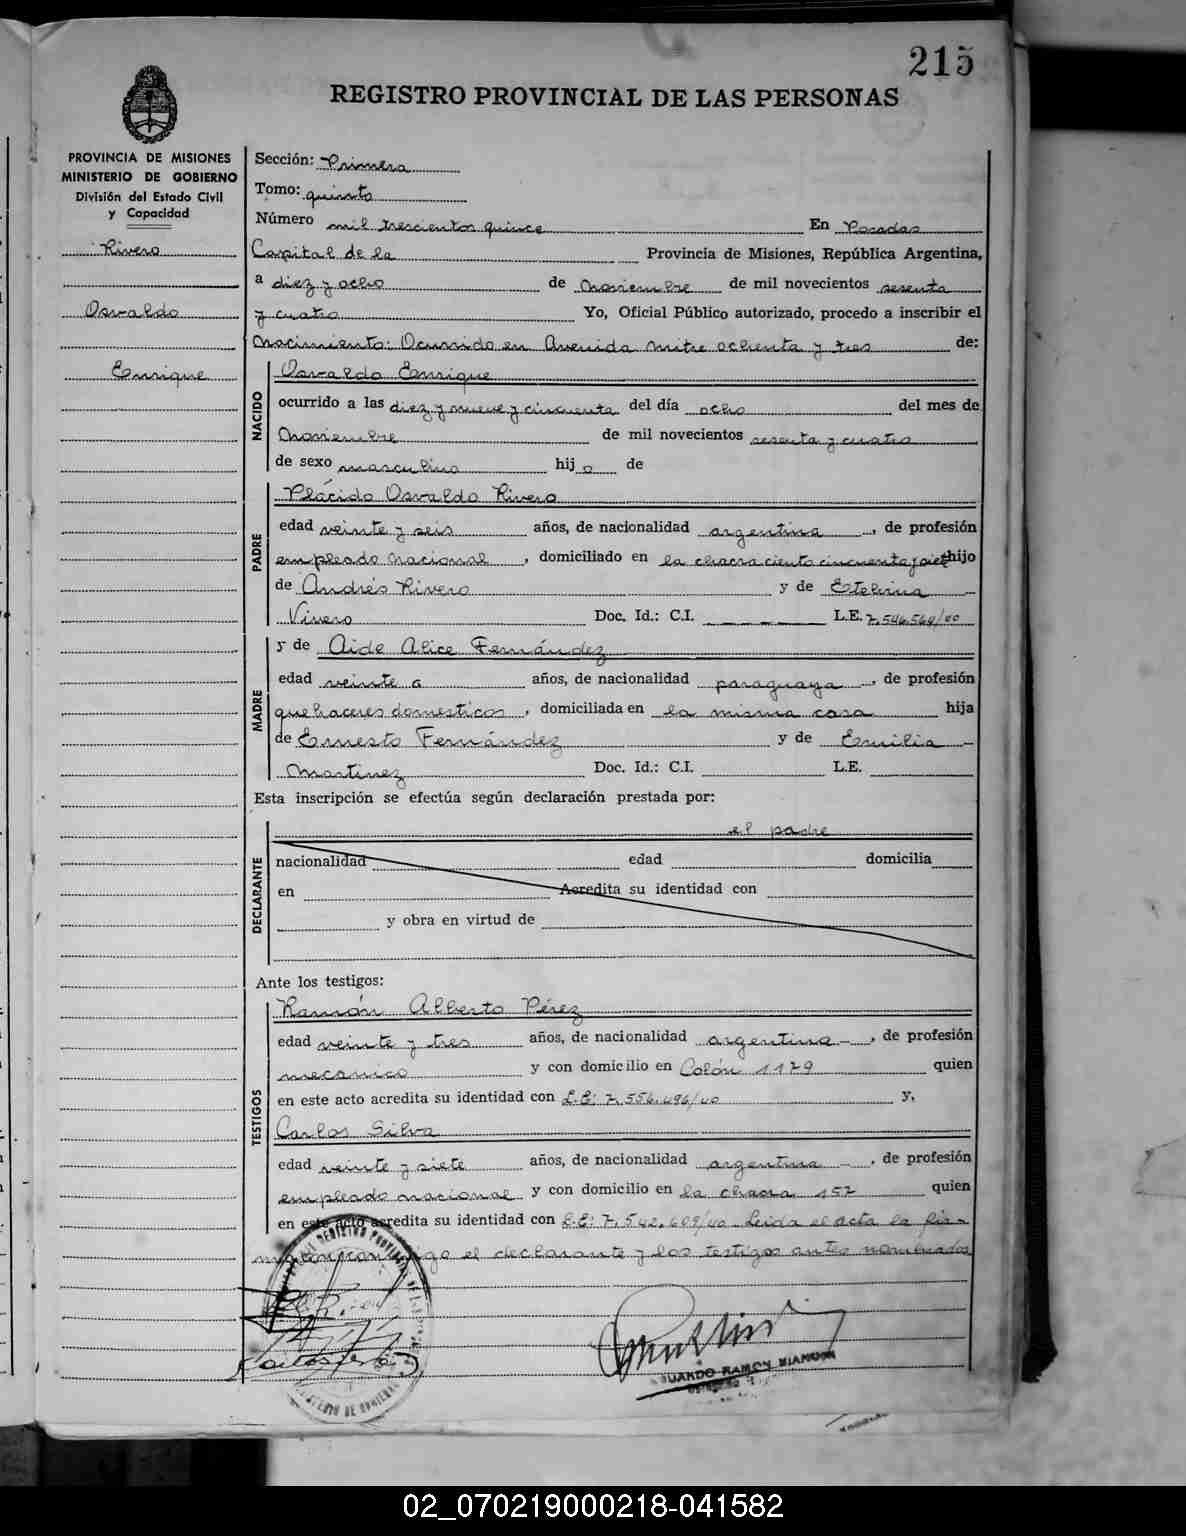 215
REGISTRO PROVINCIAL DE LAS PERSONAS
PROVINCIA DE MISIONES
MINISTERIO DE GOBIERNO
División del Estado Civil
y Capacidad
Rivero
Osvaldo
Enrique
Sección: Primera
Tomo: quinto
Número mil trescientos quince En Posadas
Capital de la Provincia de Misiones, República Argentina,
a diez y ocho de Noviembre de mil novecientos sesenta
y cuatro Yo, Oficial Público autorizado, procedo a inscribir el
Nacimiento: Ocurrido en Avenida Mitre ochenta y tres de:
NACIDO
Osvaldo Enrique
ocurrido a las diez y nueve y cincuenta del día ocho del mes de
Noviembre de mil novecientos sesenta y cuatro
de sexo masculino hijo de
PADRE
Plácido Osvaldo Rivero
edad veinte y seis años, de nacionalidad argentina, de profesión
empleado nacional, domiciliado en la chacra ciento cincuenta y siete hijo
de Andrés Rivero y de Etelvina
Vivero Doc. Id.: C.I. L.E. 7.546.564/40
MADRE
y de Aide Alice Fernández
edad veinte a años, de nacionalidad paraguaya, de profesión
quehaceres domesticos, domiciliada en la misma casa hija
de Ernesto Fernández y de Emilia
Martinez Doc. Id.: C.I. L.E.
Esta inscripción se efectúa según declaración prestada por:
DECLARANTE
el padre
nacionalidad edad domicilia
en Acredita su identidad con
y obra en virtud de
Ante los testigos:
TESTIGOS
Ramón Alberto Pérez
edad veinte y tres años, de nacionalidad argentina, de profesión
mecanico y con domicilio en Colón 1179 quien
en este acto acredita su identidad con L.E: 7.556.496/40 y,
Carlos Silva
edad veinte y siete años, de nacionalidad argentina, de profesión
empleado nacional y con domicilio en la chacra 157 quien
en este acto acredita su identidad con L.E: 7.542.609/40 Leida el acta la fir-
el declarante y los testigos antes nombrados
EDUARDO RAMON
02_070219000218-041582